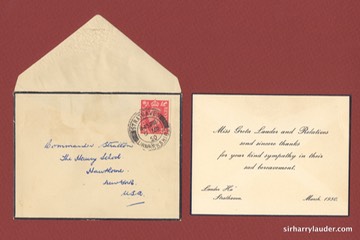 Commander Stratton
The Henry School
Hawthorne
New York
U.S.A.
Miss Greta Lauder and Relations
send sincere thanks
for your kind sympathy in their
sad bereavement.
Lauder Ha'
Strathaven.
March, 1950.
www.sirharrylauder.com